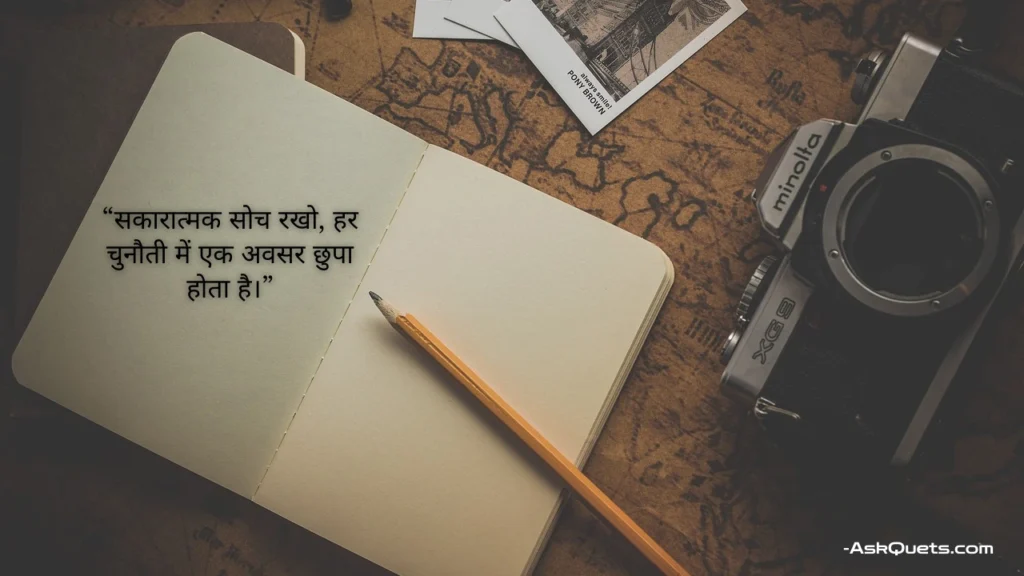 “सकारात्मक सोच रखो, हर
चुनौती में एक अवसर छुपा
होता है।”
always smile!
PONY BROWN
minolta
XG 9
-AskQuets.com